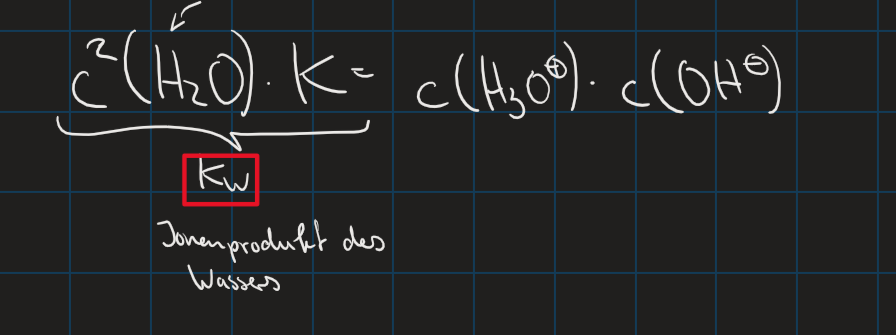 c²(H₂O) · K = c(H₃O⊕) · c(OH⊖)
Kw
Ionenprodukt des
Wassers